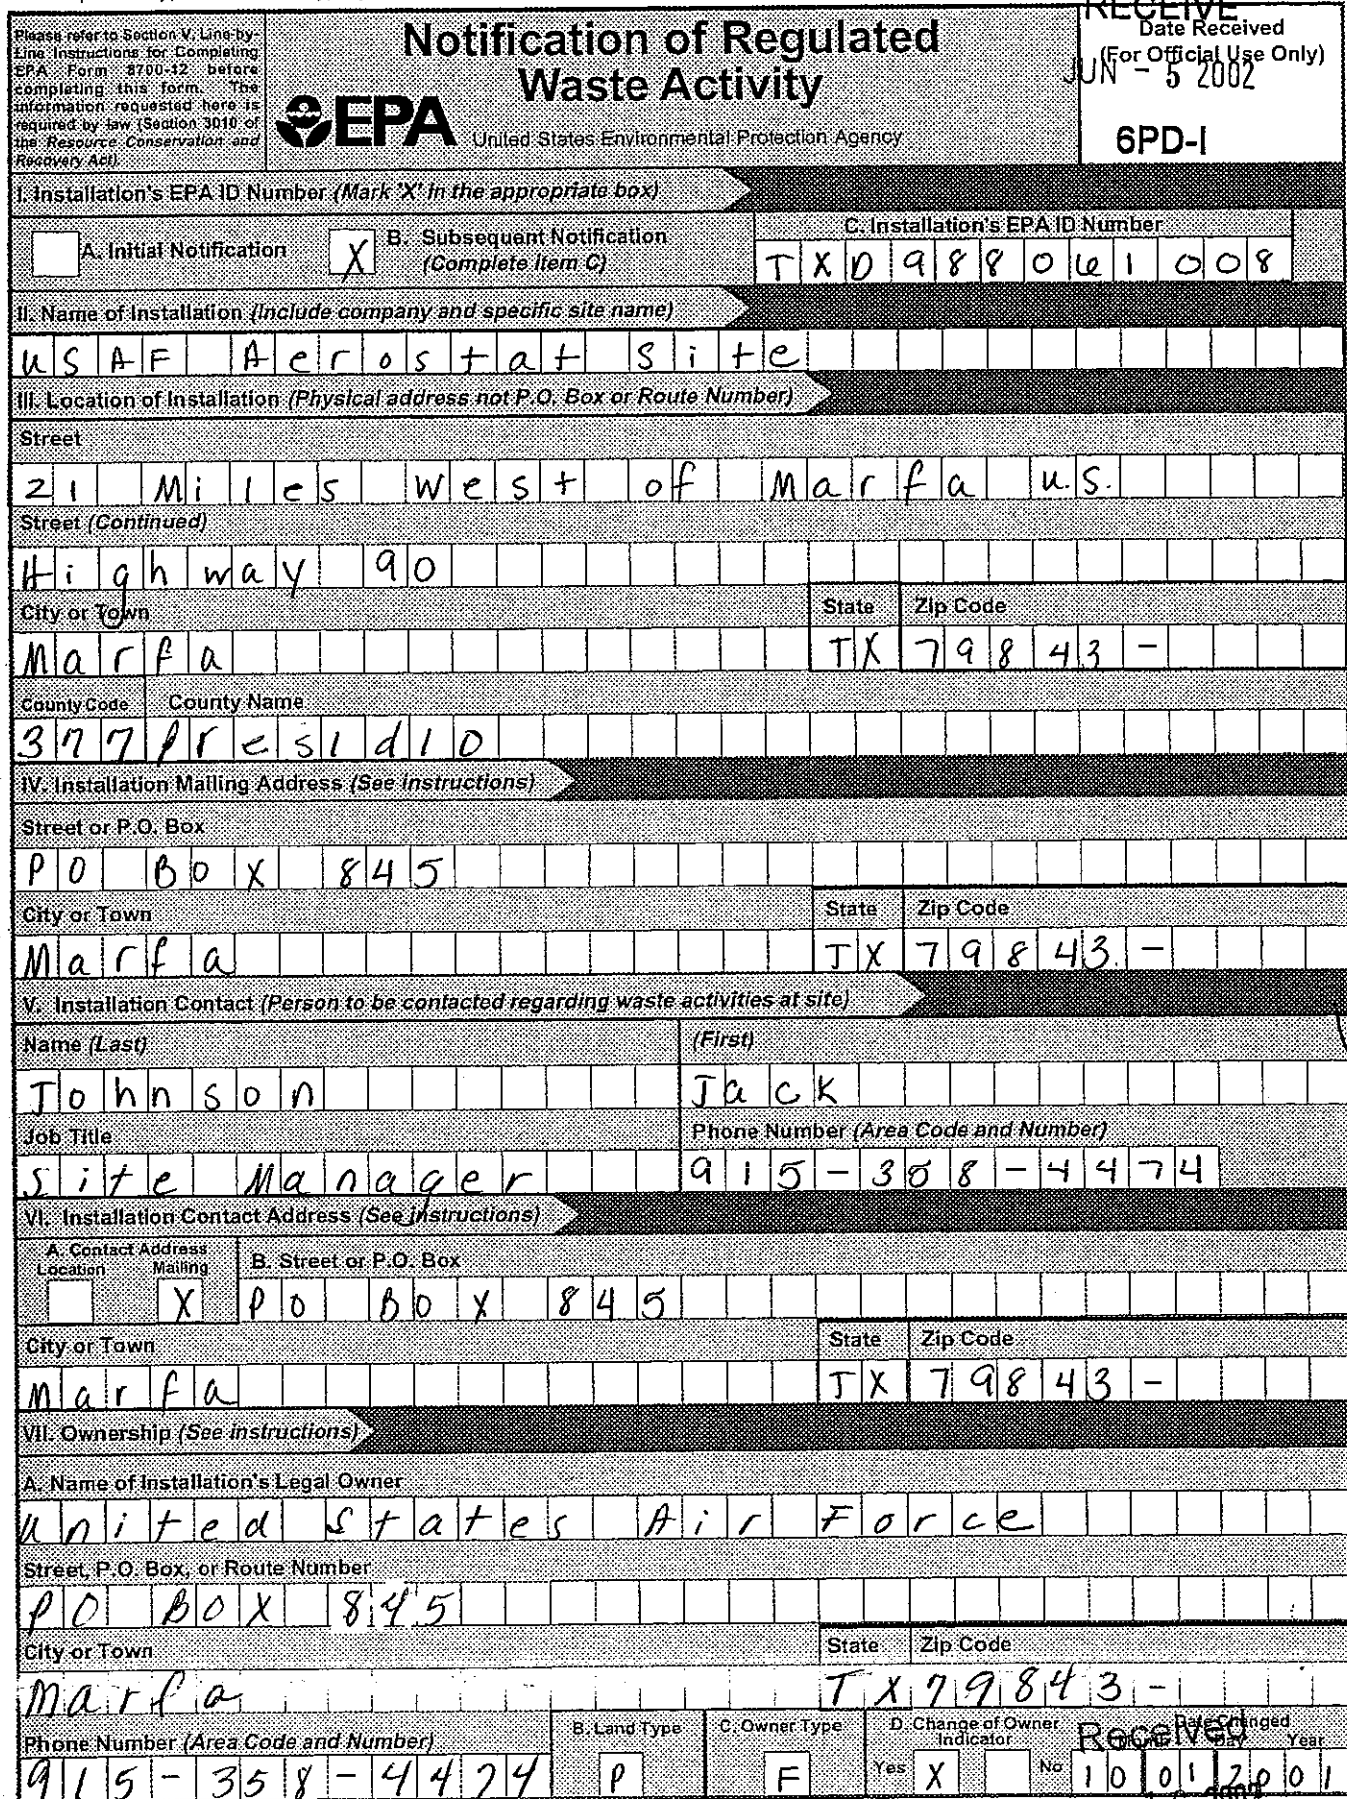 Please refer to Section V, Line-by-
Line Instructions for Completing
EPA Form 8700-12 before
completing this form. The
information requested here is
required by law (Section 3010 of
the Resource Conservation and
Recovery Act).
Notification of Regulated
Waste Activity
EPA
United States Environmental Protection Agency
RECEIVE
Date Received
(For Official Use Only)
JUN - 5 2002
6PD-I
I. Installation's EPA ID Number (Mark 'X' in the appropriate box)
A. Initial Notification
X B. Subsequent Notification
(Complete item C)
C. Installation's EPA ID Number
TXD988061008
II. Name of Installation (Include company and specific site name)
USAF Aerostat Site
III. Location of Installation (Physical address not P.O. Box or Route Number)
Street
21 Miles West of Marfa U.S.
Street (Continued)
Highway 90
City or Town State Zip Code
Marfa TX 79843-
County Code County Name
377 Presidio
IV. Installation Mailing Address (See instructions)
Street or P.O. Box
PO BOX 845
City or Town State Zip Code
Marfa TX 79843-
V. Installation Contact (Person to be contacted regarding waste activities at site)
Name (Last) (First)
Johnson Jack
Job Title Phone Number (Area Code and Number)
Site Manager 915-358-4474
VI. Installation Contact Address (See instructions)
A. Contact Address
Location Mailing B. Street or P.O. Box
X PO BOX 845
City or Town State Zip Code
Marfa TX 79843-
VII. Ownership (See instructions)
A. Name of Installation's Legal Owner
United States Air Force
Street, P.O. Box, or Route Number
PO BOX 845
City or Town State Zip Code
Marfa TX 79843-
Phone Number (Area Code and Number) B. Land Type C. Owner Type D. Change of Owner
Indicator Received Date Changed
Day Year
915-358-4474 P F Yes X No 10 01 2001